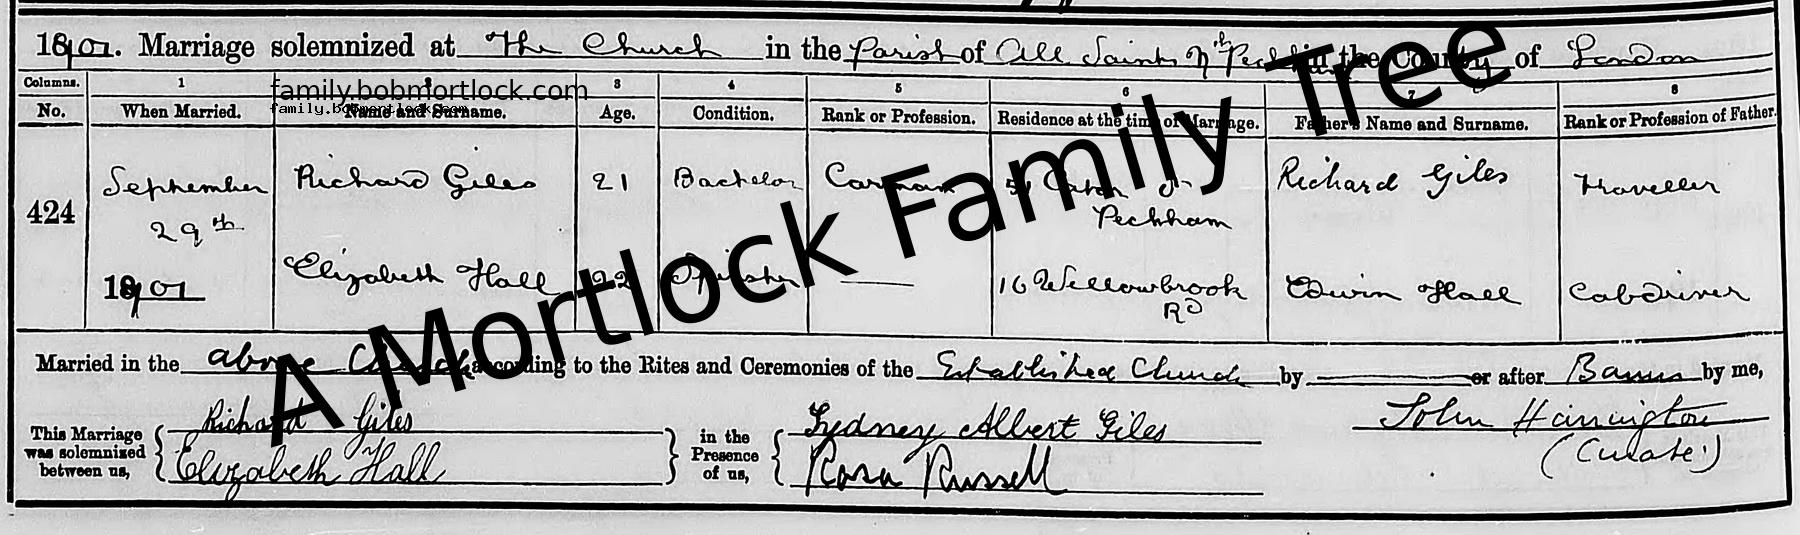 1901. Marriage solemnized at The Church in the Parish of All Saints Nth Peckham in the County of London
Columns. 1 2 3 4 5 6 7 8
family.bobmortlock.com
family.bobmortlock.com
No. When Married. Name and Surname. Age. Condition. Rank or Profession. Residence at the time of Marriage. Father's Name and Surname. Rank or Profession of Father.
September Richard Giles 21 Bachelor Carman 51 Peckham Richard Giles Traveller
424
29th
1901 Elizabeth Hall 22 Spinster 16 Willowbrook Rd Edwin Hall Cabdriver
Married in the above Church according to the Rites and Ceremonies of the Established Church by or after Banns by me,
This Marriage was solemnized between us, Richard Giles Elizabeth Hall in the Presence of us, Sydney Albert Giles Rosa Russell John Harrington (Curate)
A Mortlock Family Tree